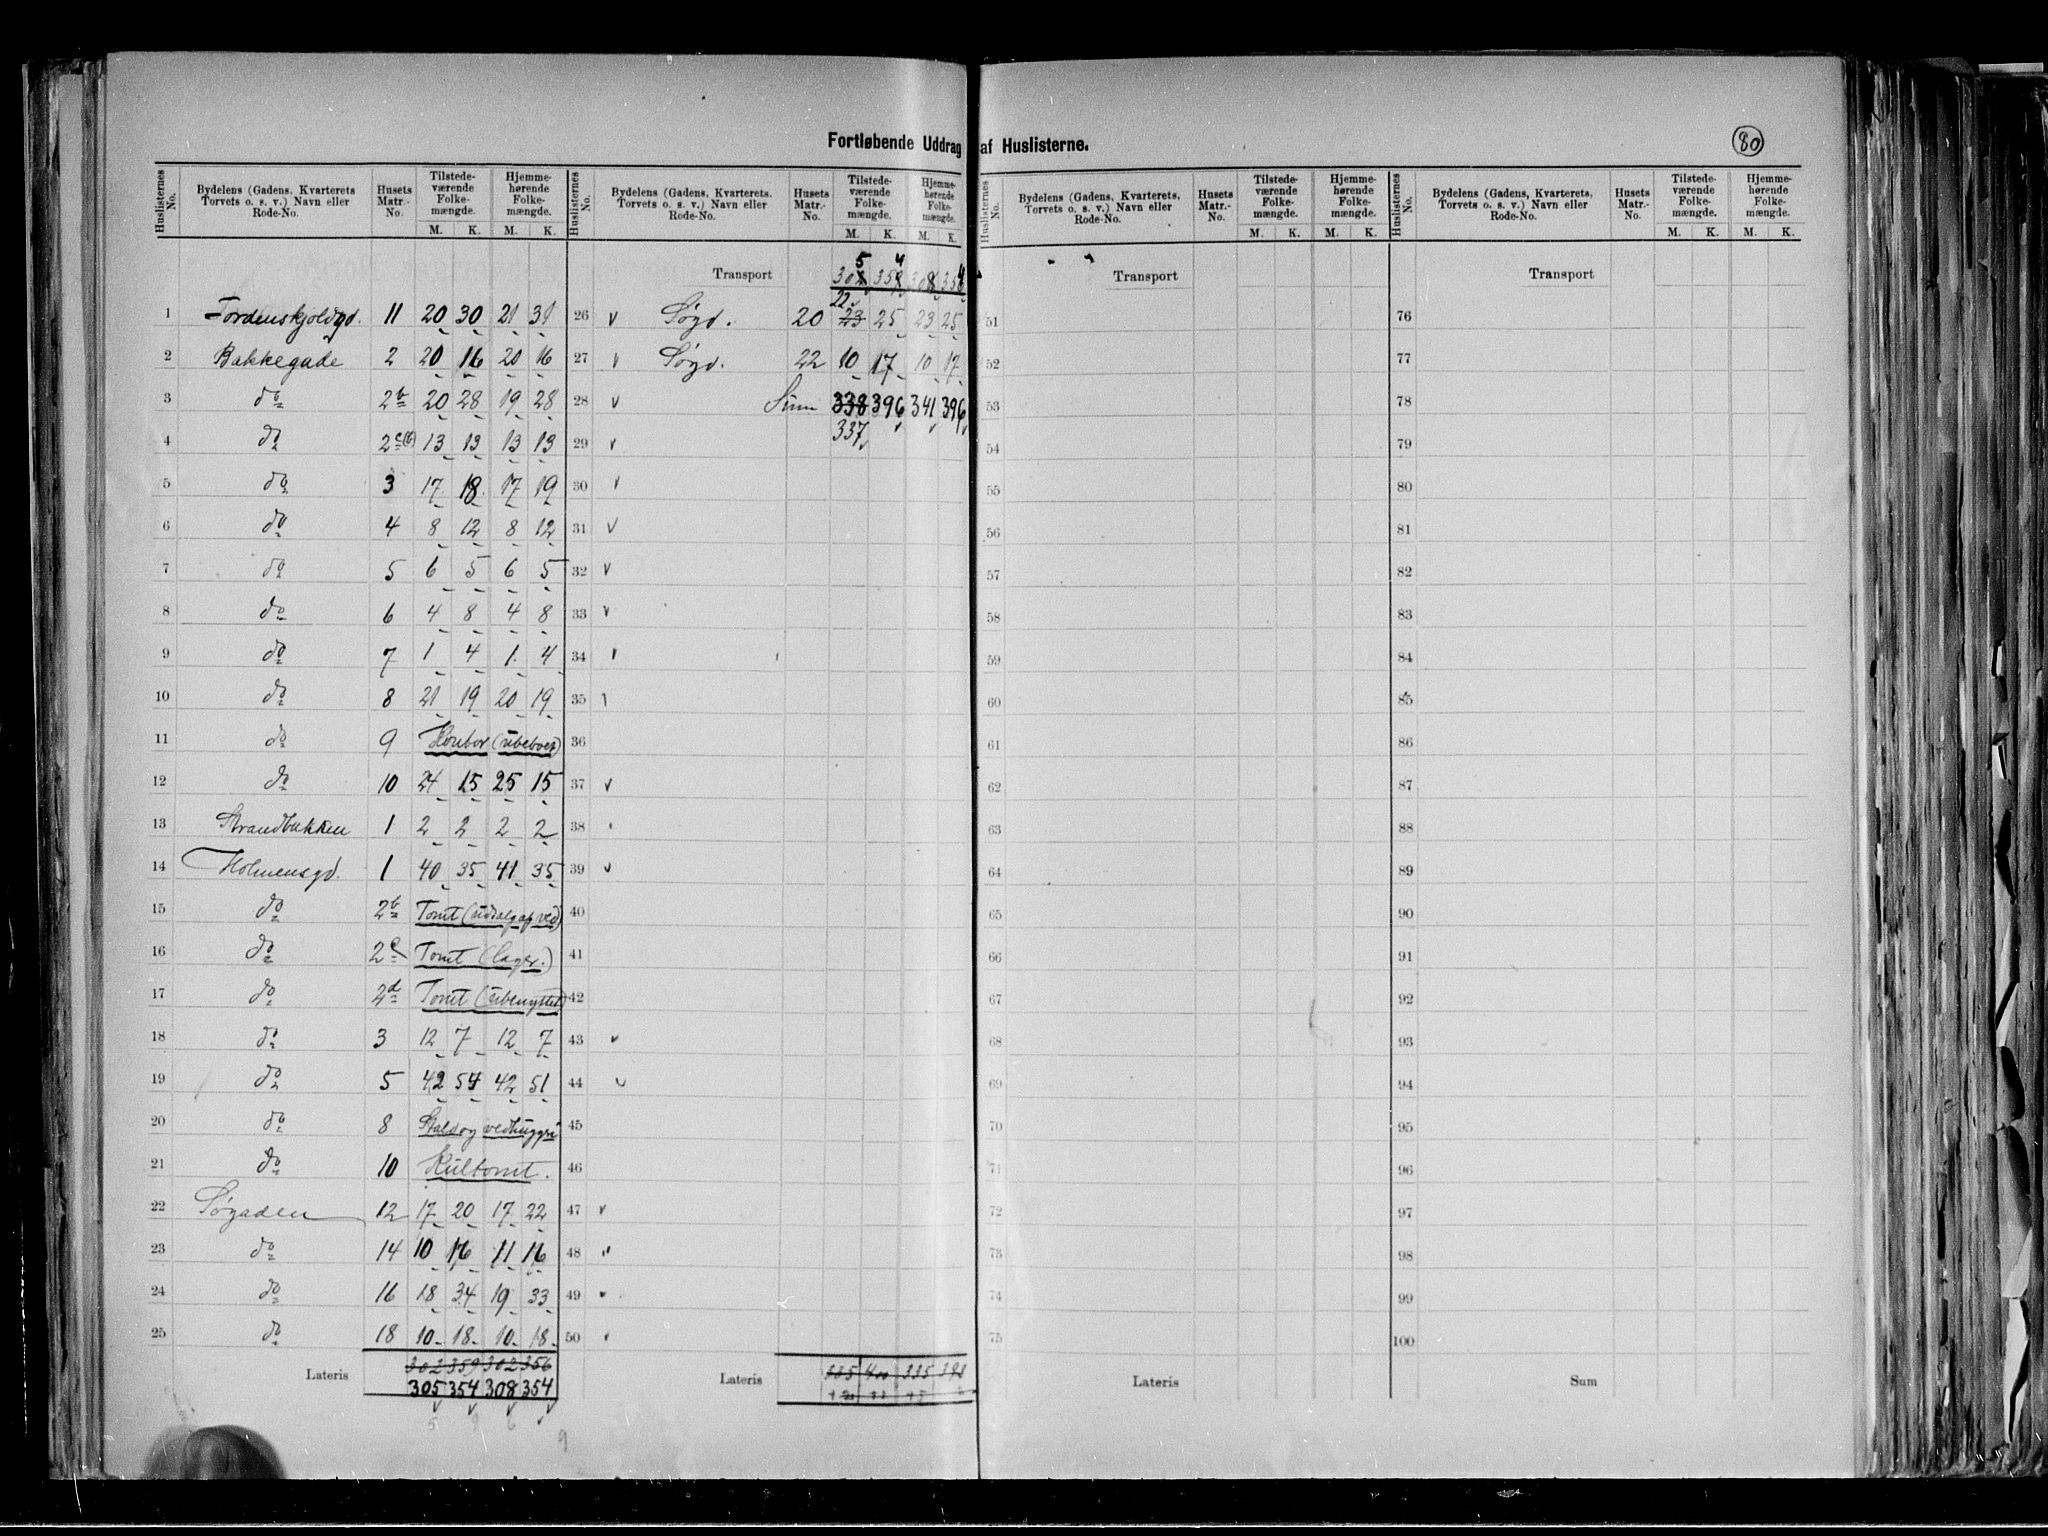 Fortløbende Uddrag af Huslisterne.
80
Huslisternes No. | Bydelens (Gadens, Kvarterets Torvets o. s. v.) Navn eller Rode-No. | Husets Matr.-No. | Tilstedeværende Folkemængde. M. K. | Hjemmehørende Folkemængde. M. K.
1 Tordenskjoldgd. 11 20 30 21 31
2 Bakkegade 2 20 16 20 16
3 do 2b 20 28 19 28
4 do 2c(b) 13 13 13 13
5 do 3 17 18 17 19
6 do 4 8 12 8 12
7 do 5 6 5 6 5
8 do 6 4 8 4 8
9 do 7 1 4 1 4
10 do 8 21 19 20 19
11 do 9 (ubeboet)
12 do 10 24 15 25 15
13 Strandbakken 1 2 2 2 2
14 Holmensgd. 1 40 35 41 35
15 do 2b Tomt (udsalg af ved)
16 do 2c Tomt (lager.)
17 do 2d Tomt (ubenyttet)
18 do 3 12 7 12 7
19 do 5 42 54 42 51
20 do 8 Stald og vedhuggeri
21 do 10 Kultomt.
22 Søgaden 12 17 20 17 22
23 do 14 10 16 11 16
24 do 16 18 34 19 33
25 do 18 10 18 10 18
Lateris 302 359 302 356
305 354 308 354
Huslisternes No. | Bydelens (Gadens, Kvarterets. Torvets o. s. v.) Navn eller Rode-No. | Husets Matr.-No. | Tilstedeværende Folkemængde. M. K. | Hjemmehørende Folkemængde. M. K.
Transport 305 354 308 354
22
26 Søgd. 20 23 25 23 25
27 Søgd. 22 10 17 10 17
28 Sum 338 396 341 396
29 337
30
31
32
33
34
35
36
37
38
39
40
41
42
43
44
45
46
47
48
49
50
Lateris 335 400 335 398
Huslisternes No. | Bydelens (Gadens, Kvarterets, Torvets o. s. v.) Navn eller Rode-No. | Husets Matr.-No. | Tilstedeværende Folkemængde. M. K. | Hjemmehørende Folkemængde. M. K.
Transport
51
52
53
54
55
56
57
58
59
60
61
62
63
64
65
66
67
68
69
70
71
72
73
74
75
Lateris
Huslisternes No. | Bydelens (Gadens, Kvarterets, Torvets o. s. v.) Navn eller Rode-No. | Husets Matr.-No. | Tilstedeværende Folkemængde. M. K. | Hjemmehørende Folkemængde. M. K.
Transport
76
77
78
79
80
81
82
83
84
85
86
87
88
89
90
91
92
93
94
95
96
97
98
99
100
Sum